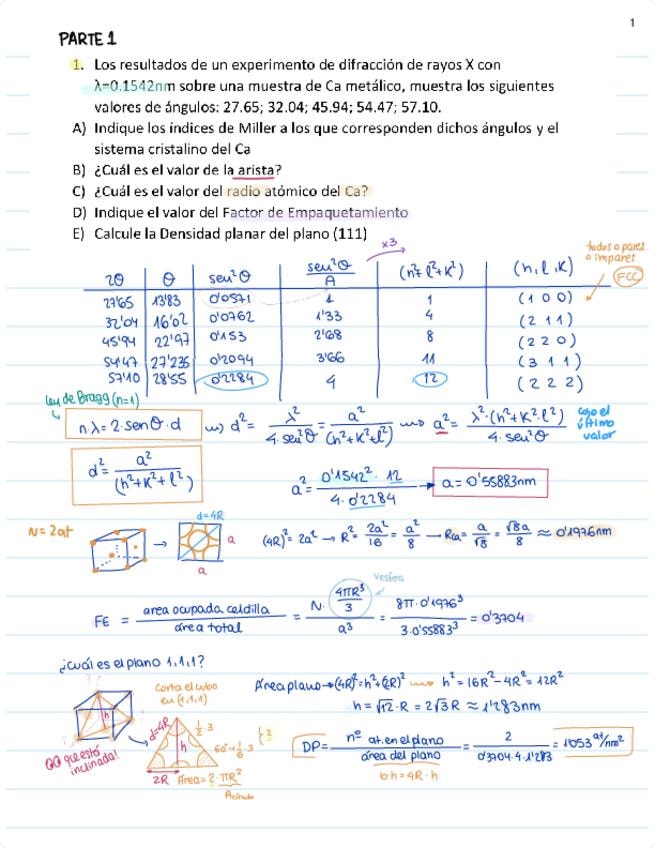 1
PARTE 1
1. Los resultados de un experimento de difracción de rayos X con
λ=0.1542nm sobre una muestra de Ca metálico, muestra los siguientes
valores de ángulos: 27.65; 32.04; 45.94; 54.47; 57.10.
A) Indique los índices de Miller a los que corresponden dichos ángulos y el
sistema cristalino del Ca
B) ¿Cuál es el valor de la arista?
C) ¿Cuál es el valor del radio atómico del Ca?
D) Indique el valor del Factor de Empaquetamiento
E) Calcule la Densidad planar del plano (111)
x3
todos o pares
o impares
FCC
2θ | θ | sen²θ | sen²θ/A | (h²+l²+k²) | (h,l,k)
27'65 | 13'83 | 0'0571 | 1 | 1 | (1 0 0)
32'04 | 16'02 | 0'0762 | 1'33 | 4 | (2 1 1)
45'94 | 22'97 | 0'153 | 2'68 | 8 | (2 2 0)
54'47 | 27'235 | 0'2094 | 3'66 | 11 | (3 1 1)
57'10 | 28'55 | 0'2284 | 4 | 12 | (2 2 2)
Ley de Bragg (n=1)
n·λ = 2·senθ·d → d² = λ²/4·sen²θ = a²/(h²+k²+l²) → a² = λ²·(h²+k²+l²)/4·sen²θ
cojo el
último
valor
d² = a²/(h²+k²+l²)
a² = 0'1542²·12/4·0'2284 → a = 0'55883nm
N = 2at
d=4R
a
a
(4R)² = 2a² → R² = 2a²/16 = a²/8 → R = a/√8 = √8a/8 ≈ 0'1976nm
Vesfera
FE = area ocupada celdilla/área total = N·4πR³/3/a³ = 8π·0'1976³/3·0'55883³ = 0'3704
¿cuál es el plano 1,1,1?
Corta el cubo
en (1,1,1)
Área plano → (4R)² = h²+(2R)² → h² = 16R²-4R² = 12R²
h = √12·R = 2√3R ≈ 1'283nm
h
d=4R
h
1/2·3
60°→1/6·3
2
que está
inclinada!
2R
Área = 2·πR²
Acírculo
DP = nº at. en el plano/área del plano = 2/0'3704·4·1'283 = 1'053 at/nm²
b·h = 4R·h